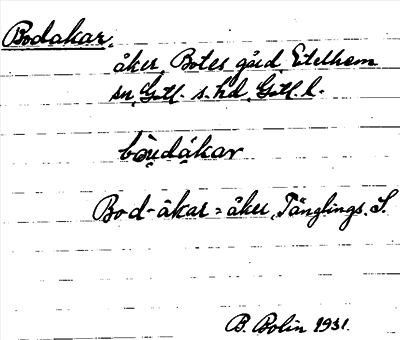 Bodakar.
åker, Botes gård, Etelhem
sn, Gotl. s. hd, Gotl. l.
bo̤ṳdákar
Bod-åkar = åker, Tänglings. S.
B. Bolin 1931.